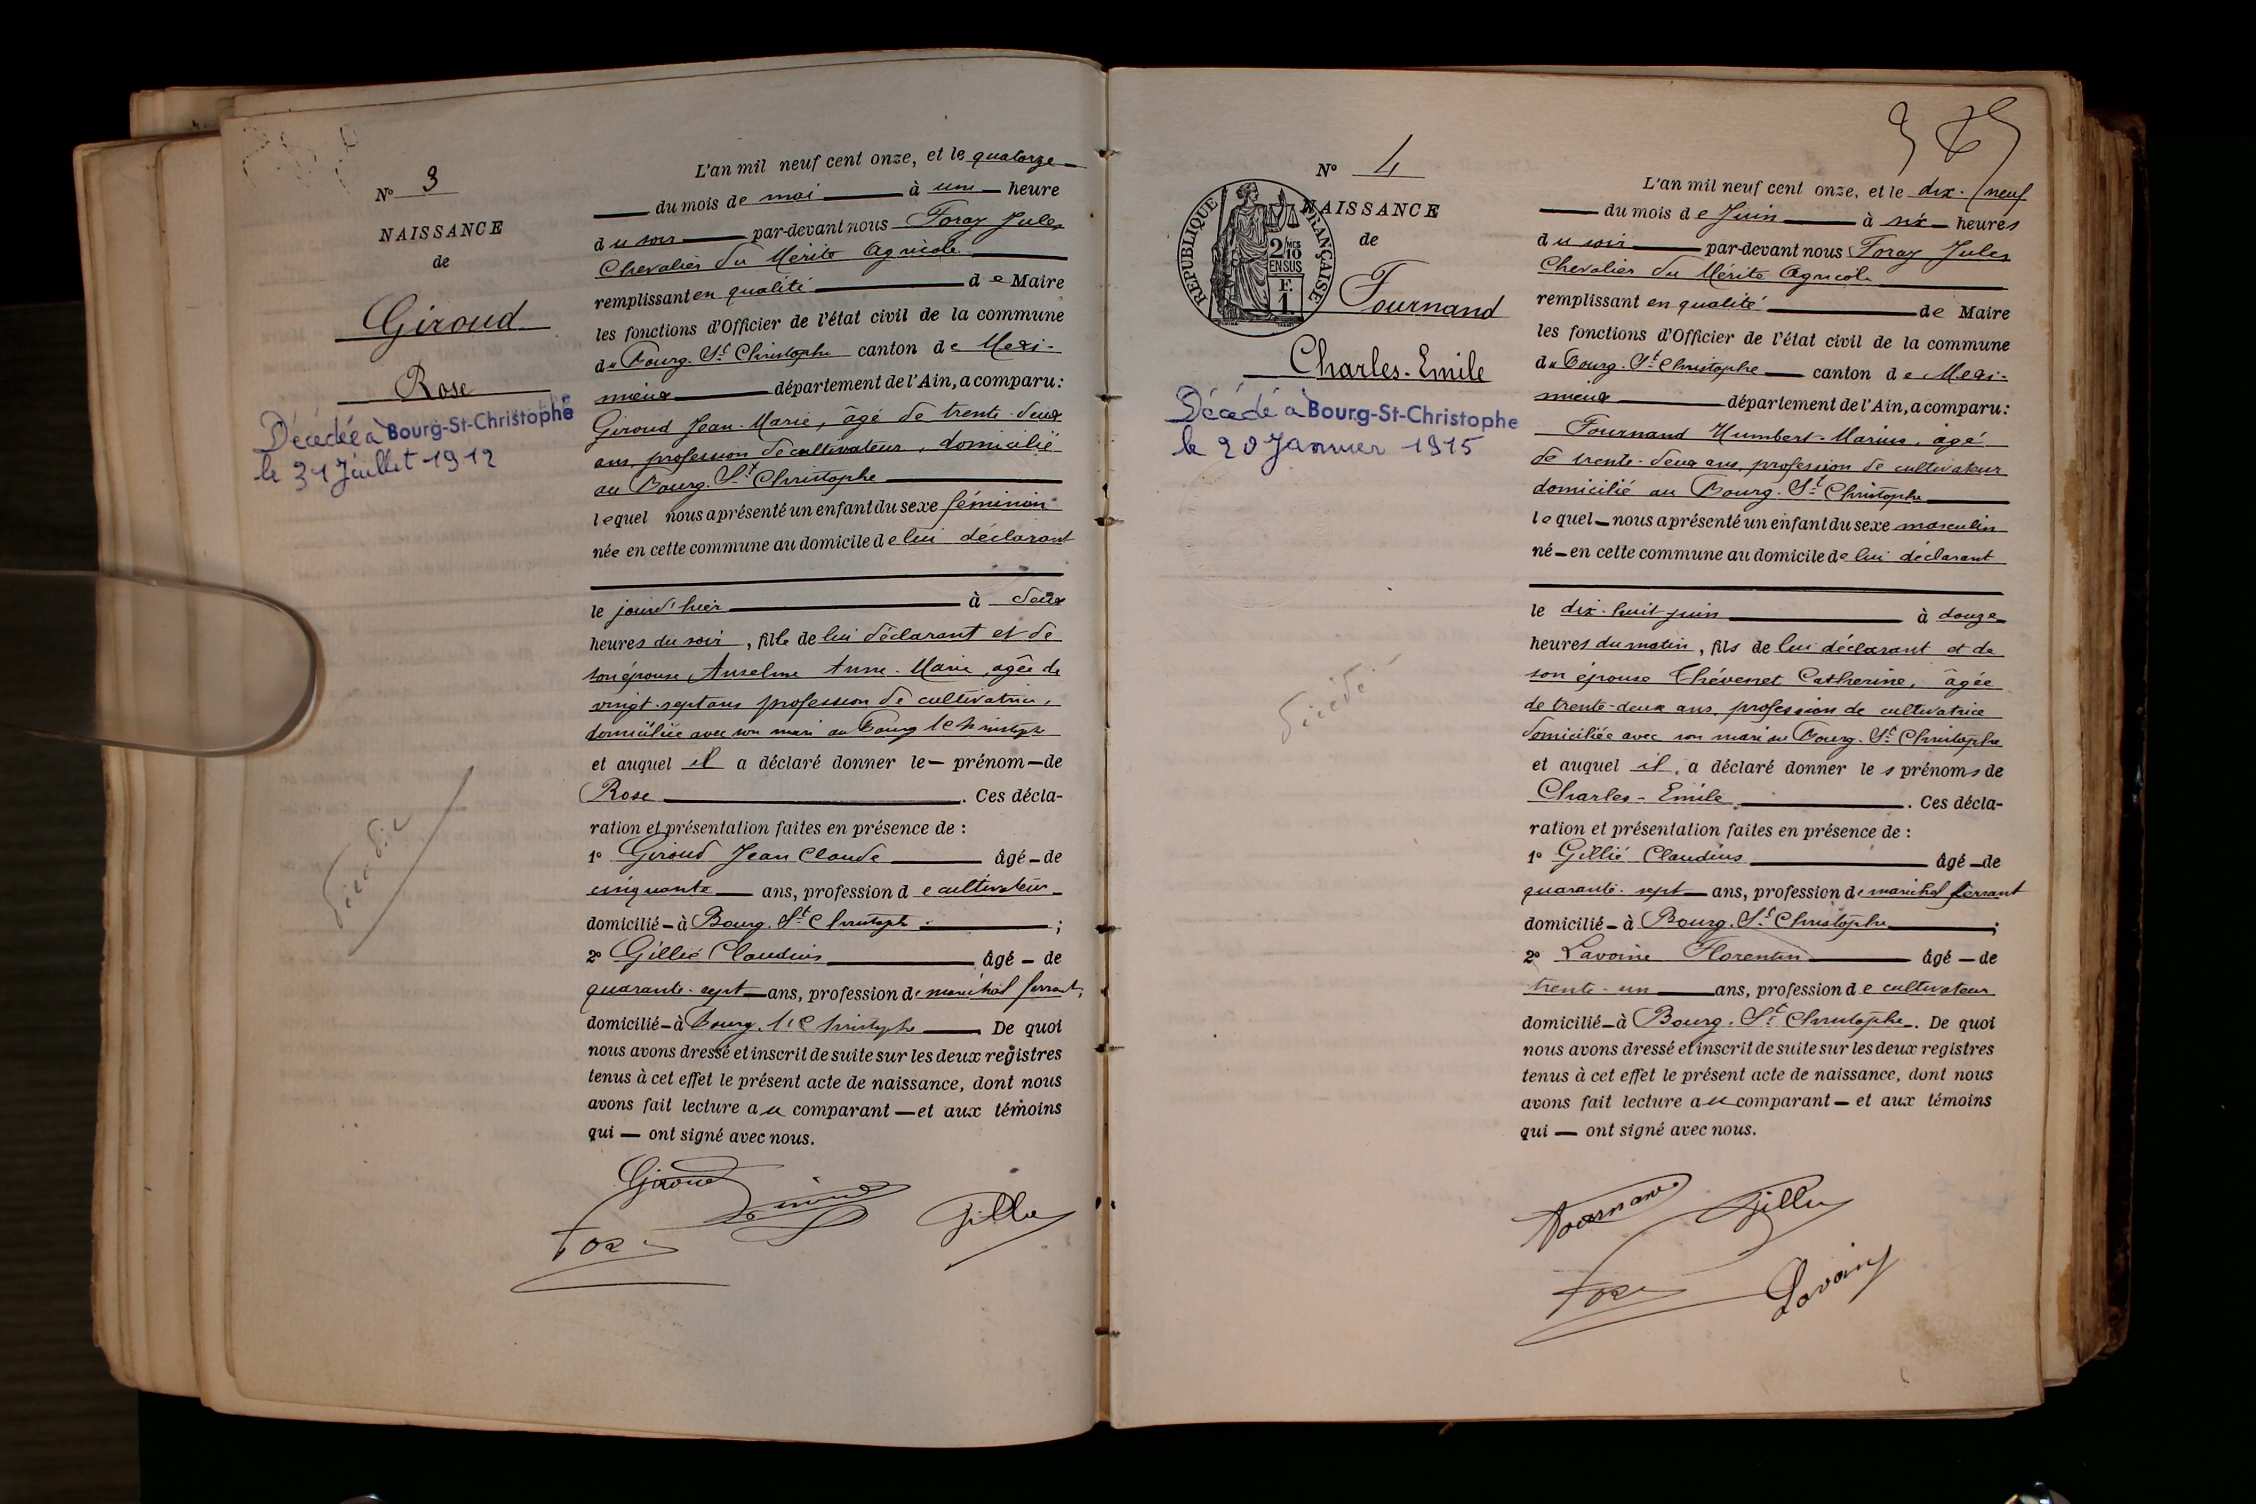 N° 3
NAISSANCE
de
Giroud
Rose
Décédée à Bourg-St-Christophe
le 31 Juillet 1912
décédée
L'an mil neuf cent onze, et le quatorze
du mois de mai à une heure
du soir par-devant nous Foray Jules
Chevalier du Mérite Agricole
remplissant en qualité de Maire
les fonctions d'Officier de l'état civil de la commune
du Bourg-St Christophe canton de Mexi-
mieux département de l'Ain, a comparu :
Giroud Jean-Marie, âgé de trente-deux
ans, profession de cultivateur, domicilié
au Bourg-St Christophe
lequel nous a présenté un enfant du sexe féminin
née en cette commune au domicile de lui déclarant
le jourd'hier à deux
heures du soir, fille de lui déclarant et de
son épouse Anselme Anne-Marie, âgée de
vingt-sept ans profession de cultivatrice,
domiciliée avec son mari au Bourg St Christophe
et auquel il a déclaré donner le prénom de
Rose. Ces décla-
ration et présentation faites en présence de :
1° Giroud Jean Claude âgé de
cinquante ans, profession de cultivateur
domicilié à Bourg-St Christophe ;
2° Gillié Claudius âgé de
quarante-sept ans, profession de maréchal ferrant,
domicilié à Bourg-St Christophe De quoi
nous avons dressé et inscrit de suite sur les deux registres
tenus à cet effet le présent acte de naissance, dont nous
avons fait lecture au comparant et aux témoins
qui ont signé avec nous.
Giroud Giroud Gillié
Foray
N° 4
RÉPUBLIQUE FRANÇAISE
2/10 EN SUS
F. 1
NAISSANCE
de
Fournand
Charles-Emile
Décédé à Bourg-St-Christophe
le 20 Janvier 1915
décédé
L'an mil neuf cent onze, et le dix-neuf
du mois de Juin à six heures
du soir par-devant nous Foray Jules
Chevalier du Mérite Agricole
remplissant en qualité de Maire
les fonctions d'Officier de l'état civil de la commune
du Bourg-St Christophe canton de Mexi-
mieux département de l'Ain, a comparu :
Fournand Humbert-Marius, âgé
de trente-deux ans, profession de cultivateur
domicilié au Bourg-St Christophe
lequel nous a présenté un enfant du sexe masculin
né en cette commune au domicile de lui déclarant
le dix-huit juin à douze
heures du matin, fils de lui déclarant et de
son épouse Thévenet Catherine, âgée
de trente-deux ans, profession de cultivatrice
domiciliée avec son mari au Bourg-St Christophe
et auquel il a déclaré donner les prénoms de
Charles-Emile. Ces décla-
ration et présentation faites en présence de :
1° Gillié Claudius âgé de
quarante-sept ans, profession de maréchal ferrant
domicilié à Bourg-St Christophe ;
2° Lavoine Florentin âgé de
trente-un ans, profession de cultivateur
domicilié à Bourg-St Christophe. De quoi
nous avons dressé et inscrit de suite sur les deux registres
tenus à cet effet le présent acte de naissance, dont nous
avons fait lecture au comparant et aux témoins
qui ont signé avec nous.
Fournand Gillié
Foray Lavoine